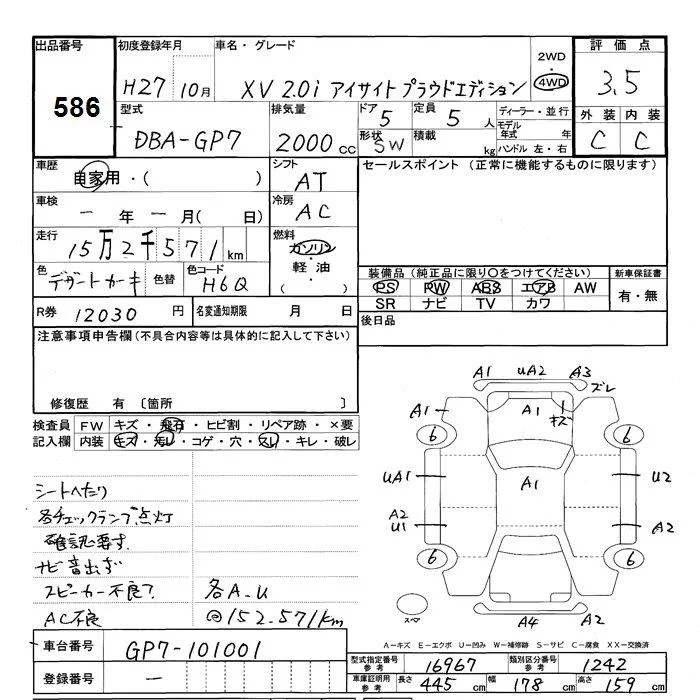 出品番号 初度登録年月 車名・グレード 2WD 4WD 評価点
586 H27 10月 XV 2.0i アイサイト プラウドエディション 3.5
型式 排気量 ドア 5 定員 5人 ディーラー・並行 外装 内装
DBA-GP7 2000cc 形状 SW 積載 kg モデル年式 年 ハンドル 左・右 C C
車歴 自家用・( ) シフト AT セールスポイント (正常に機能するものに限ります)
車検 ー年ー月( 日) 冷房 AC
走行 15万2千571km 燃料 ガソリン・軽油・( )
色 デザートカーキ 色替 色コード H6Q 装備品(純正品に限り○をつけてください) 新車保証書
PS PW ABS エアB AW 有・無
SR ナビ TV カワ
R券 12030円 名変通知期限 月 日 後日品
注意事項申告欄(不具合内容等は具体的に記入して下さい)
修復歴 有 〔箇所 〕
検査員 FW キズ・飛石・ヒビ割・リペア跡・×要
記入欄 内装 キズ・汚レ・コゲ・穴・スレ・キレ・破レ
シートへたり
各チェックランプ点灯
確認要す
ナビ音出ず
スピーカー不良?
AC不良
各A.U
@152.571km
A1 UA2 A3 ズレ
A1 A1 キズ
6 6
UA1 A1 U2
A2
U1 A2
6 6
スペア A4 A2
A-キズ E-エクボ U-凹み W-補修跡 S-サビ C-腐食 XX-交換済
車台番号 GP7-101001
登録番号 ー
型式指定番号 参考 16967 類別区分番号 参考 1242
車庫証明用 参考 長さ 445cm 幅 178cm 高さ 159cm